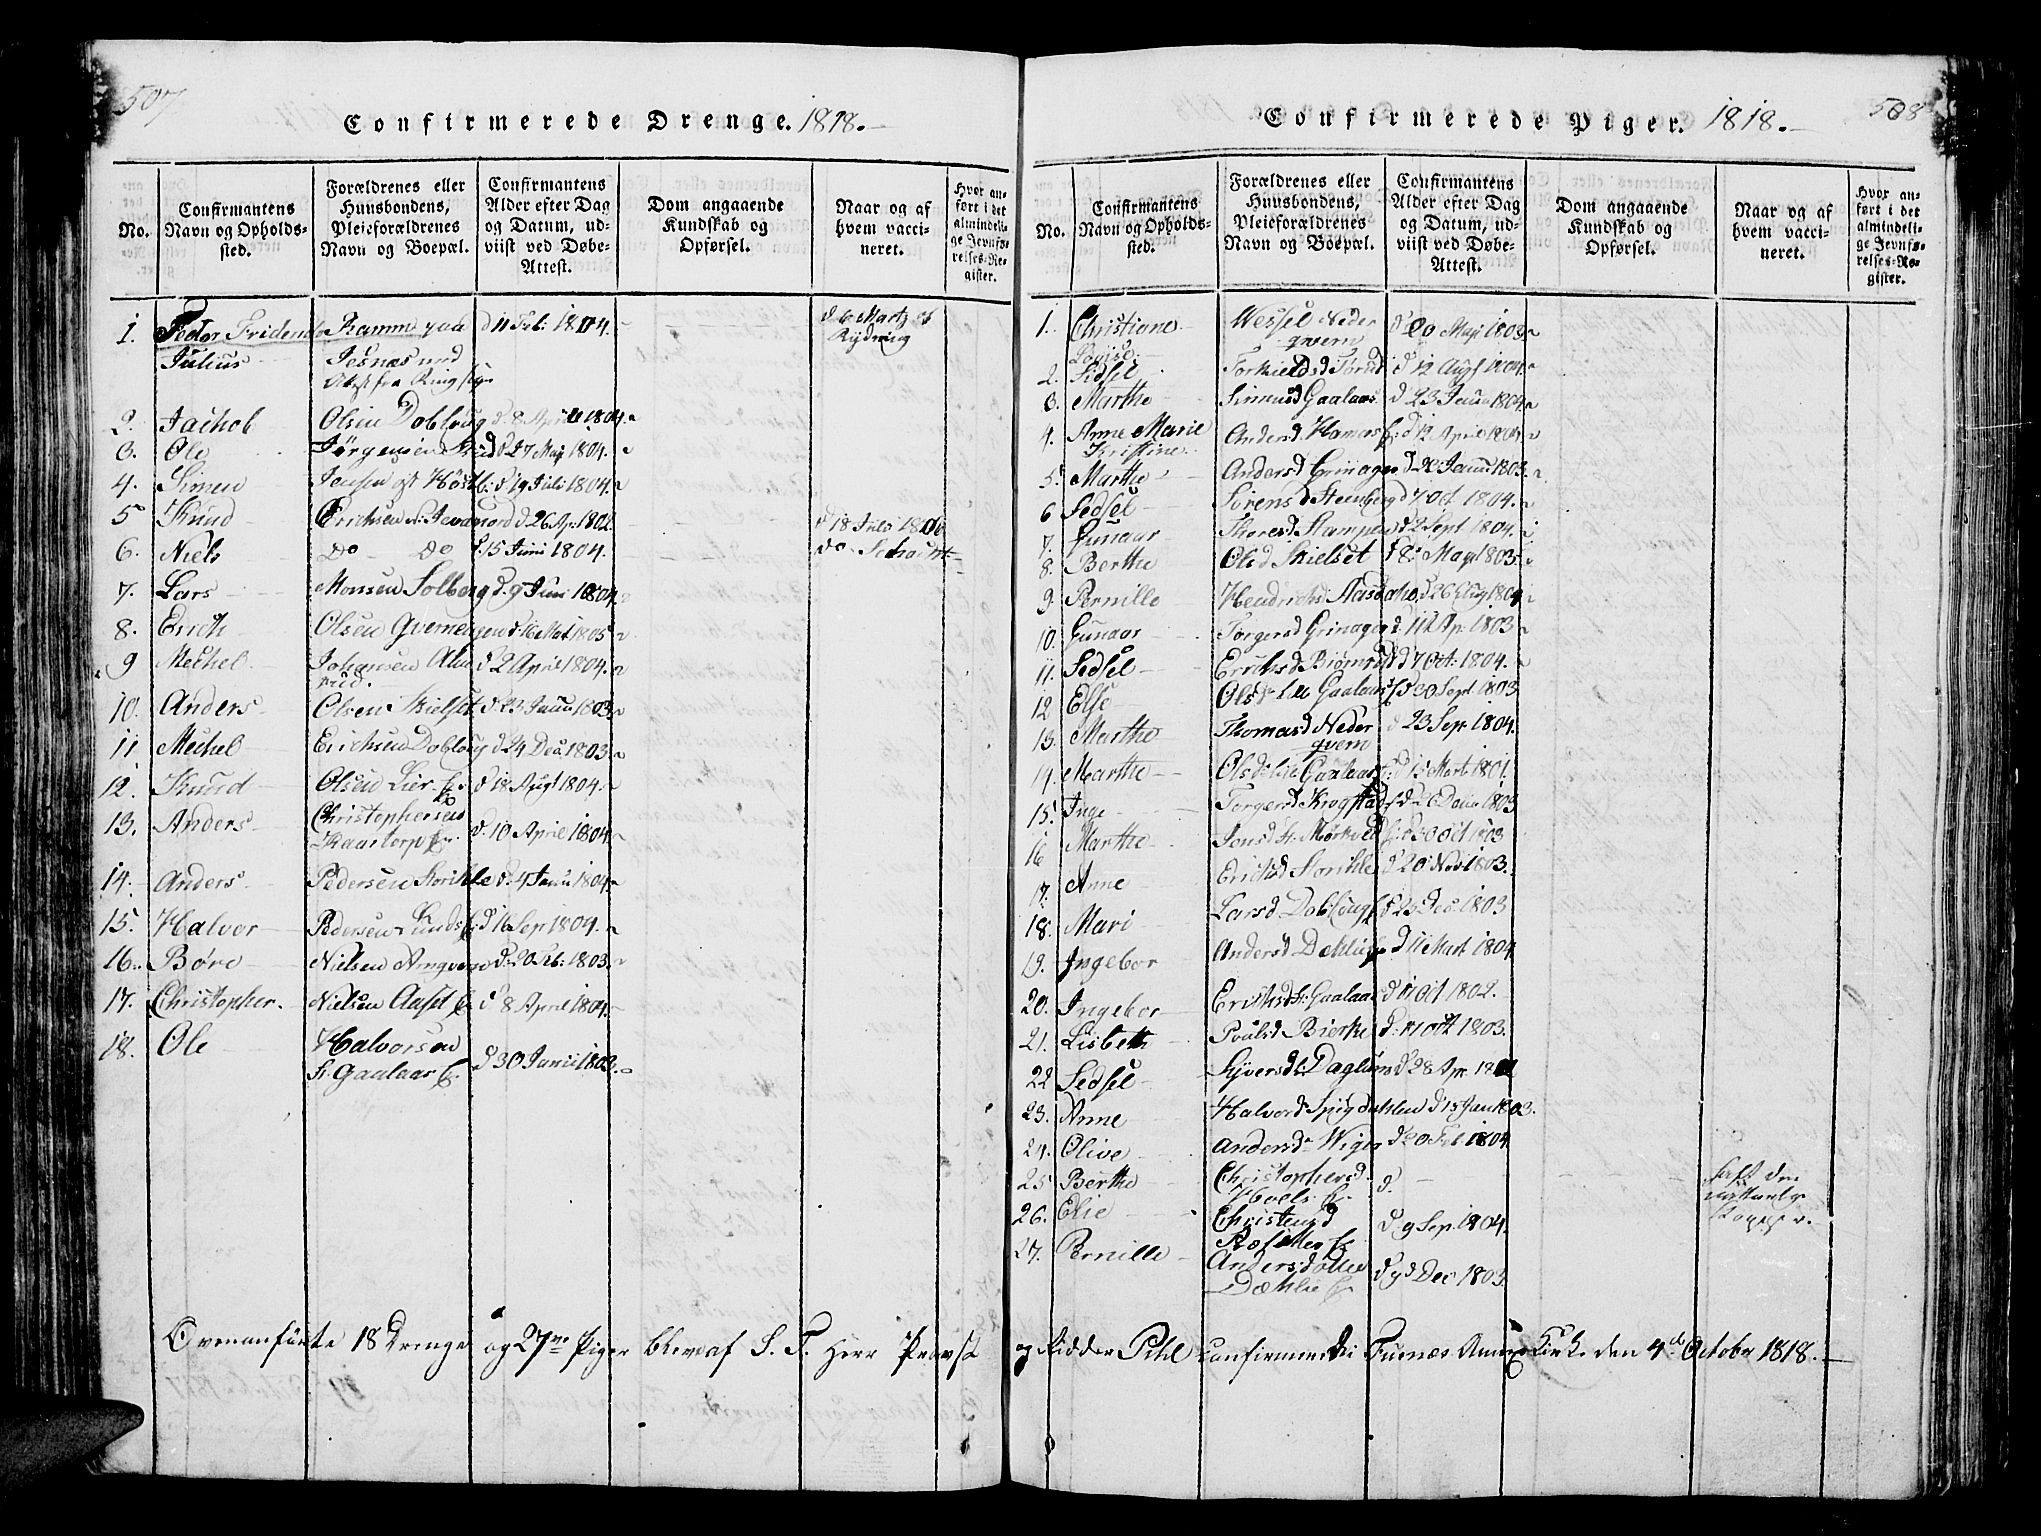 507
Confirmerede Drenge. 1818.
No.
Confirmantens Navn og Opholds-sted.
Forældrenes eller Huusbondens, Pleieforældrenes Navn og Boepæl.
Confirmantens Alder efter Dag og Datum, ud-viist ved Døbe-Attest.
Dom angaaende Kundskab og Opførsel.
Naar og af hvem vacci-neret.
Hvor an-ført i det almindeli-ge Jevnfø-relses-Re-gister.
1. Julius Ramm paa d 11 Feb: 1804.
Jesnæs
2. Jachob Olsen Dobloug d. 8 April 1804.
3. Ole Jørgensen d 27 Maj 1804.
4. Simen Jensen d 19 Juli 1804.
5 Knud Erichsen d 26 Ap. 1802 d 18 Juli
6. Niels Do Do d. 15 Juni 1804. do
7. Lars Monsen Solberg d. 9 Juni 1804.
8. Erich Olsen d. 16 Mart 1805
9 Mechel Johansen d 2 April 1804.
10. Anders Olsen Skielset d 23 Janu 1803.
11. Mechel Erichsen Dobloug d 24 Dec. 1803.
12. Knud Olsen Lier d 18 Augt 1804.
13. Anders Christophersen d. 10 April 1804.
Kaatorp
14. Anders Pedersen Storihle d. 4 Janu 1804.
15. Halvor Pedersen d 16 Sep 1804.
16. Børe Nielsen d. 20 Feb: 1803.
17. Christopher Nielsen d 8 April 1804.
18. Ole Halvorsen d 30 Janu 1803.
St. Gaalaas E.
508
Confirmerede Piger. 1818.
No.
Confirmantens Navn og Opholds-sted.
Forældrenes eller Huusbondens, Pleieforældrenes Navn og Boepæl.
Confirmantens Alder efter Dag og Datum, ud-viist ved Døbe-Attest.
Dom angaaende Kundskab og Opførsel.
Naar og af hvem vacci-neret.
Hvor an-ført i det almindeli-ge Jevnfø-relses-Re-gister.
1. Christiane Wessel Neder d 20 Maji 1803.
Lovise qvern
2. Sidsel Torkields d 12 Augt 1804.
3. Marthe Simensd Gaalaas d 23 Janu 1804.
4. Anne Marie Andersd. d 12 April 1804.
Kristine
5. Marthe Andersd Grinager d 20 Janu 1803.
6 Sedsel Sørensd Steenberg d 7 Oct. 1804.
7. Gunaar Thoresd. Stampen d 2 Sept 1804.
8. Berthe Olsd Skielset d 8 Maji 1803.
9 Pernille Hendrichsd d 26 Aug 1804
10. Gunaar Torgersd Grinager d. 11 Ap. 1803
11. Sedsel Erichsd d 7 Oct. 1804.
12 Else Olsd Lille Gaalaas d 30 Sept 1803
13. Marthe Thomasd Neder d 23 Sep 1804.
qvern
14. Marthe Olsd Lille Gaalaas d 15 Mart. 1801.
15. Inge Torgersd Krogstad 1803
16 Marthe Jensd St. Mørkved d 30 Oct 1803
17. Anne Ericksd Storihle d 20 Nov 1803.
18. Mari Larsd Doblougs d 23 Dec. 1803
19. Ingebor Andersd Dehlin d 11 Mart 1804
20. Ingebor Erichsd St. Gaalaas d 11 Oct 1802.
21. Lisbeth Poulsd Bierke d. 11 Oct 1803.
22 Sedsel Syversd Daglum d 28 Apr
23. Anne Halvord d 15 Jan 1803.
24. Olive Andersd Wiger d 20 Feb 1804
25 Berthe Christophersd d.
Hoels E.
26. Elie Christensd d 9 Sep. 1804.
27. Pernille Andersdatter d 9d Dec 1803
Dæhlie E.
Ovenanførte 18 Drenge og 27ve Piger bleve af S. T. Herr Provst og Ridder Pihl confirmerede i Furnæs Annex Kirke den 4de October 1818.